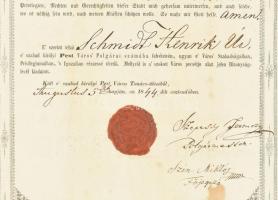 Privilegien, Rechten und Gerechtigkeiten dieser Stadt mich gehorsam unterwerfen, und auch solche,
wo es nöthig seyn wird, nach meinen Kräften schützen wolle. So wahr mir Gott helfe. amen!
E' szerint tehát Schmidt Henrik Úr
e' szabad királyi Pest Várossa' Polgárai számába felvétetvén, egyszersmind e' Város' Szabadságaiban,
Privilegiumaiban, 's Igazaiban részessé tétetik. Mellyről is e' szokott városi pecséttje alatt jelen Bizonyság-
levél kiadatott.
Költ e' szabad királyi Pest Város' Tanács-üléséből,
Augustus 5ik napján, az 1844 dik esztendőben.
Szepesy Ferencz
Polgármester
Szen. Miklós
Főjegyző